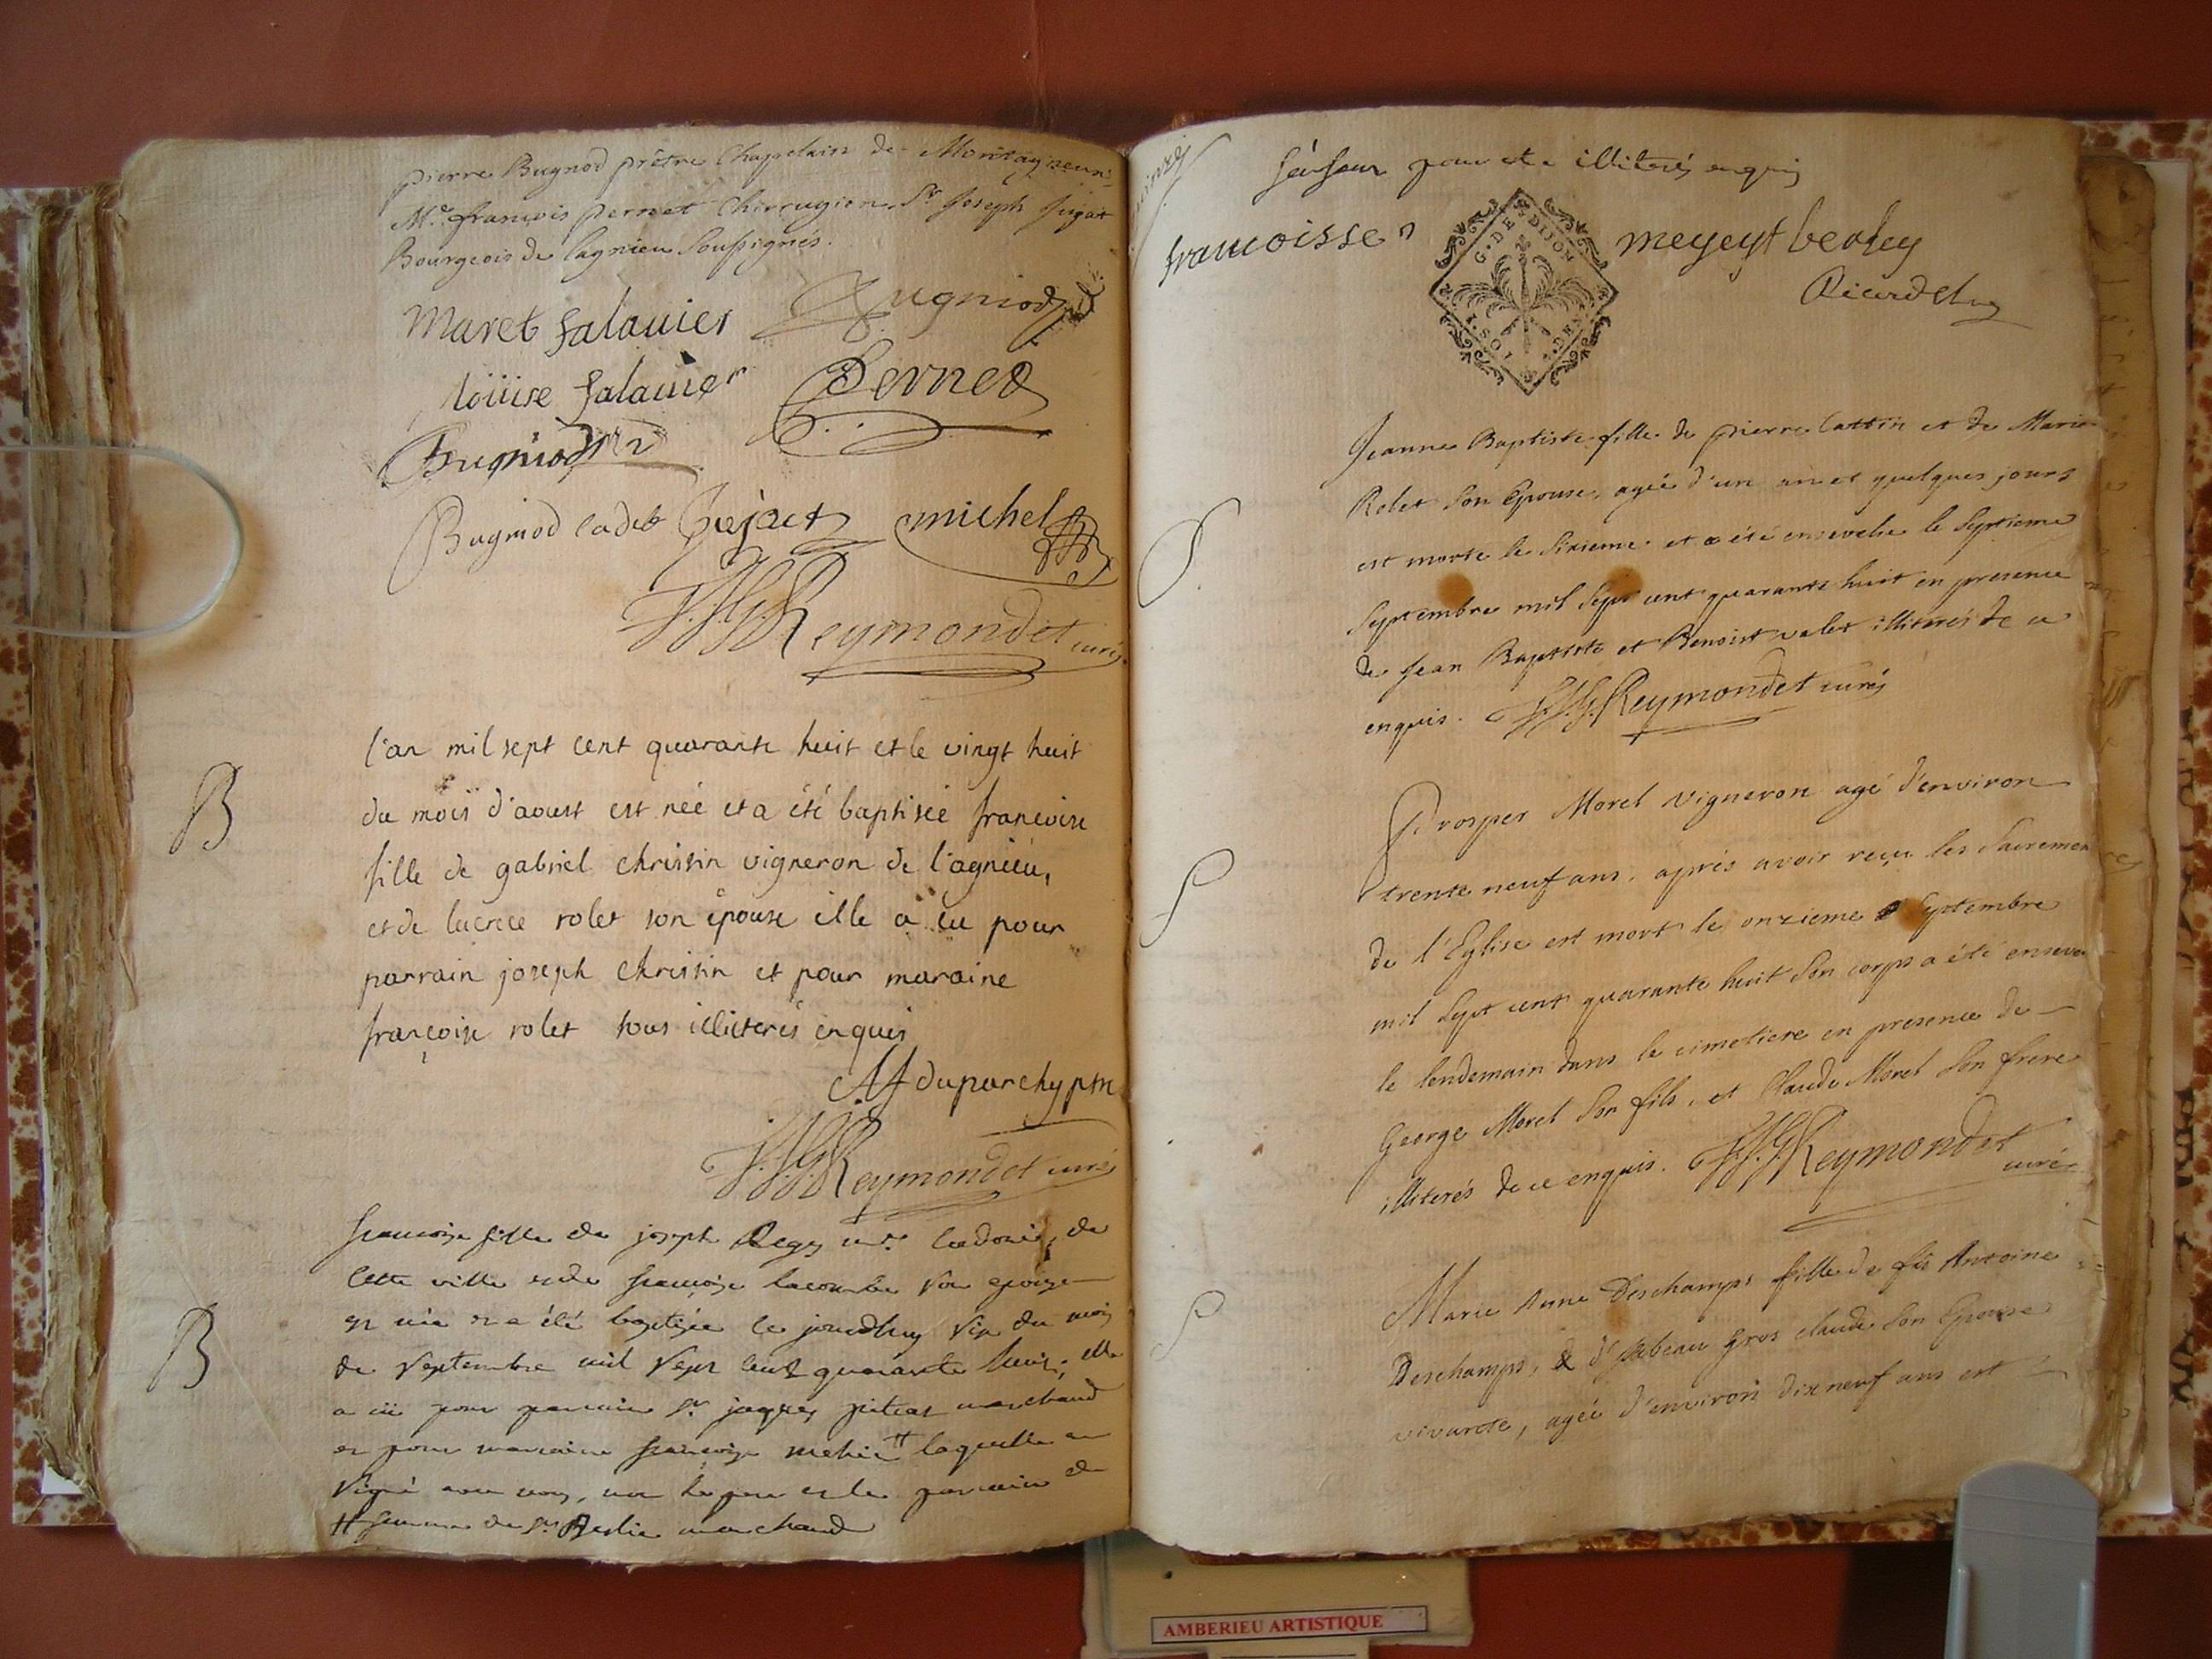 pierre Bugnod prêtre Chapelain de Montagneux
Mre. françois pernet Chirurgien, Sr. Joseph Jujat
Bourgeois de lagnieu soussignés.
maret falavier Bugniod
loüise falavier Pernet
Bugniod
Bugniod cadet Jujact michel
Reymondet curé
B
l'an mil sept cent quarante huit et le vingt huit
du moiï d'aoust est neé et a été baptiseé francoise
fille de gabriel christin vigneron de l'agnieu,
et de lucrece rolet son épouse elle a eu pour
parrain joseph christin et pour maraine
françoise rolet tous illiterés enquis
duparchy ptre
Reymondet curé
B
francoise fille de joseph Regy de
cette ville et de francoise lacombe son epouse
et née et a été baptisée ce jourdhuy six du mois
de septembre mil sept cent quarante huit, elle
a eü pour parrain sr. jaques marchand
et pour marraine francoise laquelle a
signé avec nous, non le pere et le parrain de
femme de sr marchand
pour etre illiterés enquis
francoisse
G. DE DIJON
meyeyt
Ricard
S
Jeanne Baptiste fille de pierre Cattin et de Marie
Rolet son Epouse, agée d'un an et quelques jours
est morte le sixieme et a été ensevelie le septieme
septembre mil sept cent quarante huit en presence
de Jean Baptiste et Benoist valet illiterés de ce
enquis. Reymondet curé
S
Prosper Morel vigneron agé d'environ
trente neuf ans, aprés avoir reçu les sacremen
de l'Eglise est mort le onzieme septembre
mil sept cent quarante huit son corps a été enseve
le lendemain dans le cimetiere en presence de
George Morel son fils, et Claude Morel son frere
illiterés de ce enquis. Reymondet
curé
S
Marie Anne Deschamps fille de fû Antoine
Deschamps, & d'ysabeau Gros claude son Epouse
vivante, agée d'environ dix neuf ans est
AMBERIEU ARTISTIQUE